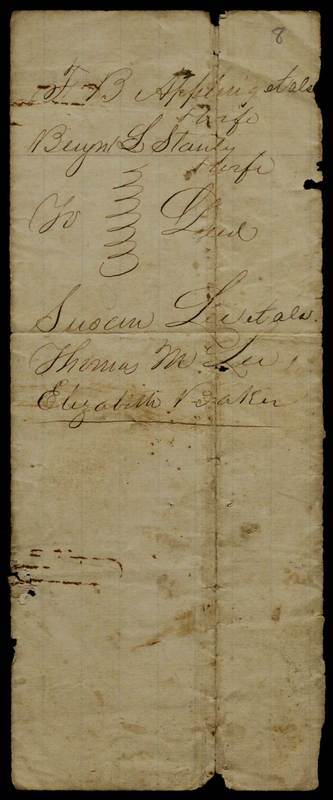 8
F B Appling et als
& wife
Benjn L Stanly
& wife
To Deed
Susan Lee et als.
Thomas M Lee
Elizabeth Baker